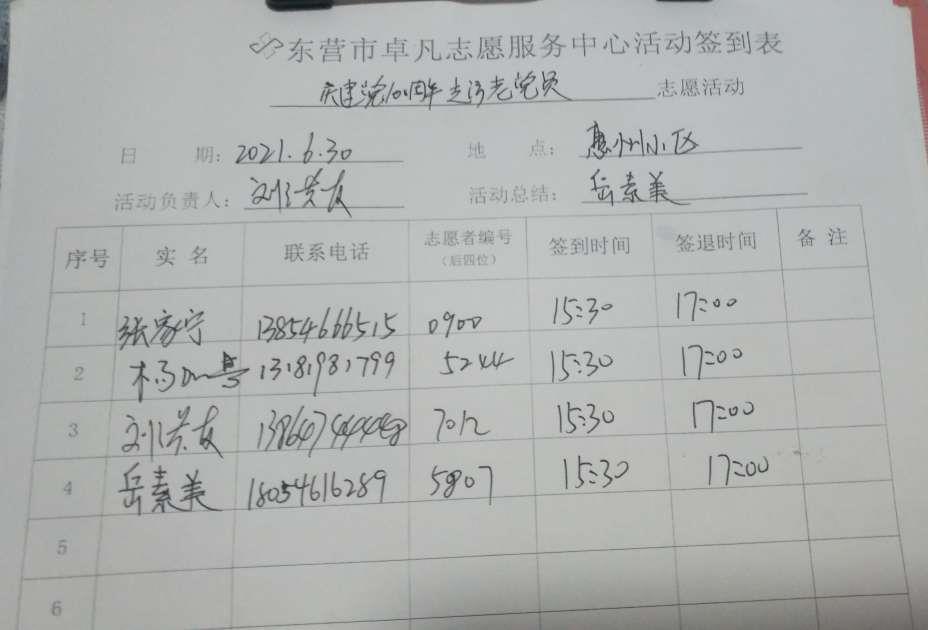 东营市卓凡志愿服务中心活动签到表
庆建党100周年走访老党员 志愿活动
日 期: 2021.6.30 地 点: 惠州小区
活动负责人: 刘洪友 活动总结: 岳素美
序号 实名 联系电话 志愿者编号(后四位) 签到时间 签退时间 备注
1 张家宁 13854666515 0900 15:30 17:00
2 13181981799 5244 15:30 17:00
3 刘洪友 7012 15:30 17:00
4 岳素美 18054616289 5807 15:30 17:00
5
6